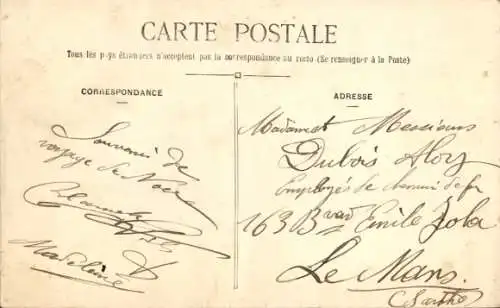 CARTE POSTALE
Tous les pays étrangers n'acceptent pas la correspondance au recto (Se renseigner à la Poste)
CORRESPONDANCE
Souvenir de
voyage de Noce
Madeleine
ADRESSE
Madame et Messieurs
Dubois Aloy
Employés de chemin de fer
163 Bvard Emile Zola
Le Mans
(Sarthe)